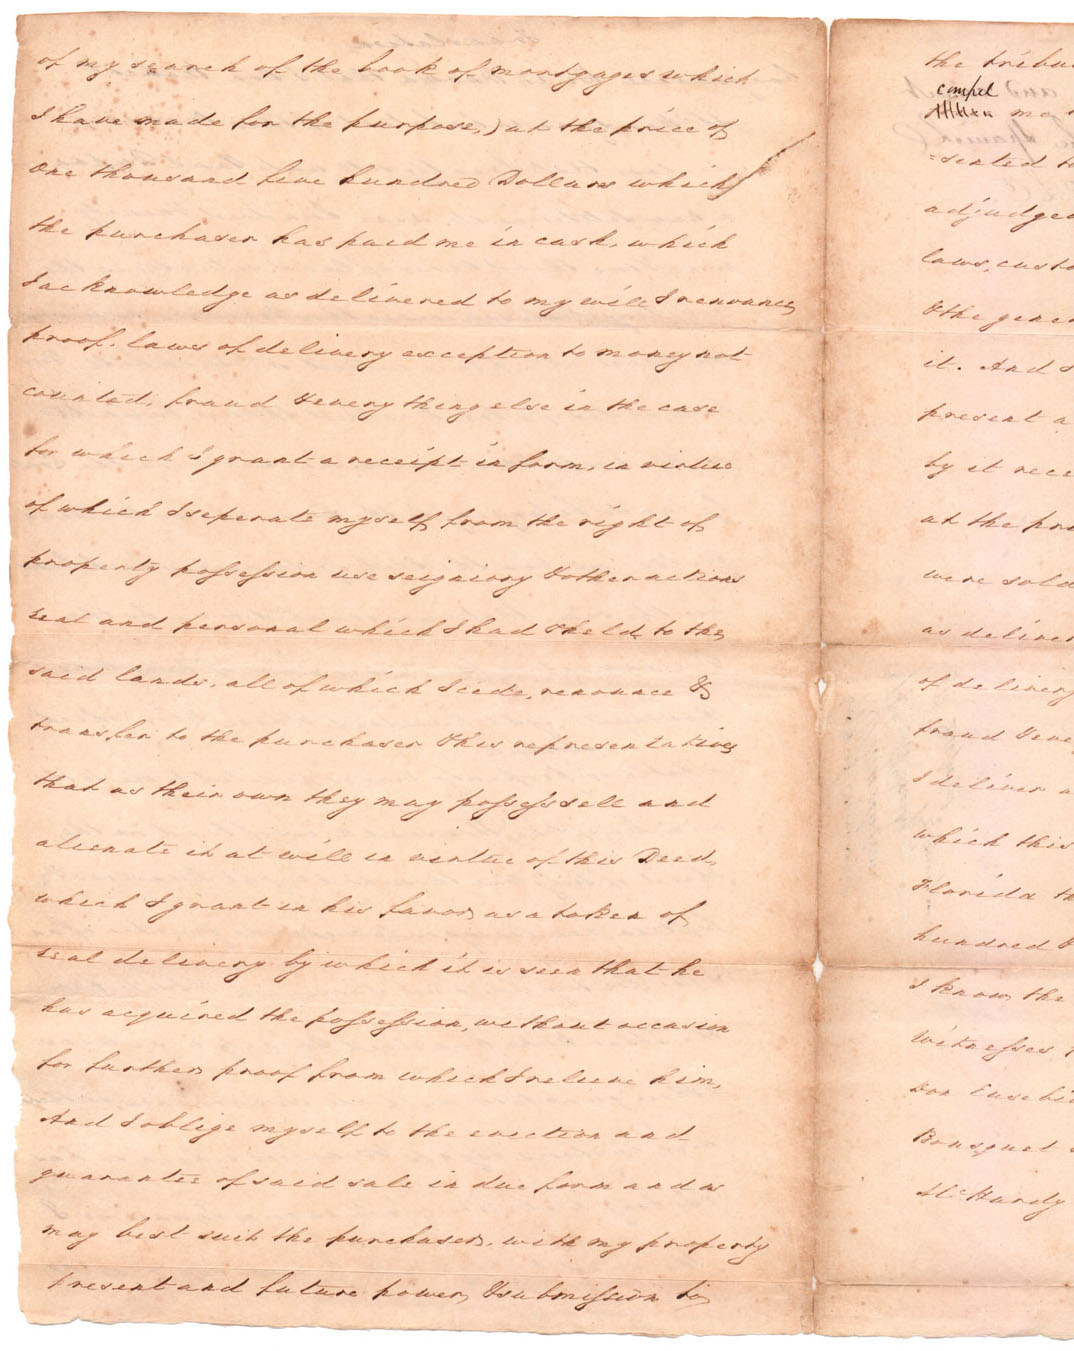 of my search of the book of mortgages which
I have made for the purpose,) at the price of
one thousand five hundred Dollars which
the purchaser has paid me in cash, which
I acknowledge as delivered to my will I renounce
proof, laws of delivery exception to money not
counted, fraud & every thing else in the case
for which I grant a receipt in form, in virtue
of which I seperate myself from the right of
property possession use seigniory & other actions
real and personal which I had & held to the
said lands, all of which I cede, renounce &
transfer to the purchaser & his representatives
that as their own they may possess sell and
alienate it at will in virtue of this Deed,
which I grant in his favor as a token of
real delivery by which it is seen that he
has acquired the possession, without occasion
for further proof from which I relieve him,
And I oblige myself to the eviction and
guarantee of said sale in due form and as
may best suit the purchaser, with my property
present and future power, & submission to
the tribu
compel
ma
=sented to
adjudged
laws, custo
& the gener
it. And I
present a
by it rece
at the pro
were sold
as deliver
of delivery
fraud & eve
I deliver a
which this
Florida th
hundred &
I know, the
Witnesses
Don Eusebio
Bousquet
McHardy